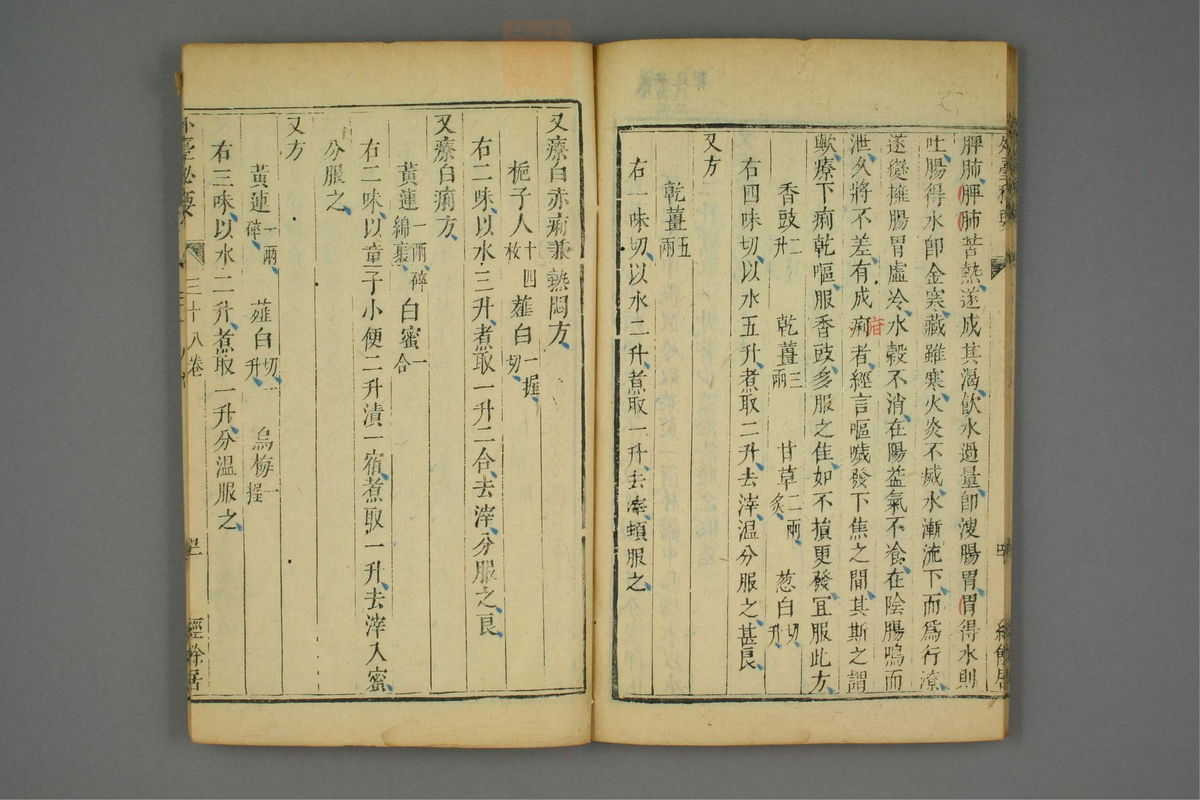 外臺秘要
脾肺脾肺苦熱遂成其渴飲水過量卽溲腸胃胃得水則
吐腸得水卽金寒藏雖寒火炎不滅水漸流下而爲行潦
遂變擁腸胃虛冷水糓不消在陽益氣不飡在陰腸鳴而
泄久將不差有成痢者經言嘔噦發下焦之間其斯之謂
疳
歟療下痢乾嘔服香豉多服之佳如不損更發宜服此方
香豉二升 乾薑三兩 甘草二兩炙 葱白切升
右四味切以水五升煮取二升去滓温分服之甚良
又方
乾薑五兩
右一味切以水二升煮取一升去滓頓服之
又療白赤痢兼熱悶方
梔子人十四枚 薤白切一握
右二味以水三升煮取一升二合去滓分服之良
又療白痢方
黃連一兩碎綿裹 白蜜一合
右二味以童子小便二升漬一宿煮取一升去滓入蜜
分服之
又方
黃連一兩碎 薤白切一升 烏梅一握
右三味以水二升煮取一升分温服之
外臺秘要 三十八卷 經餘居